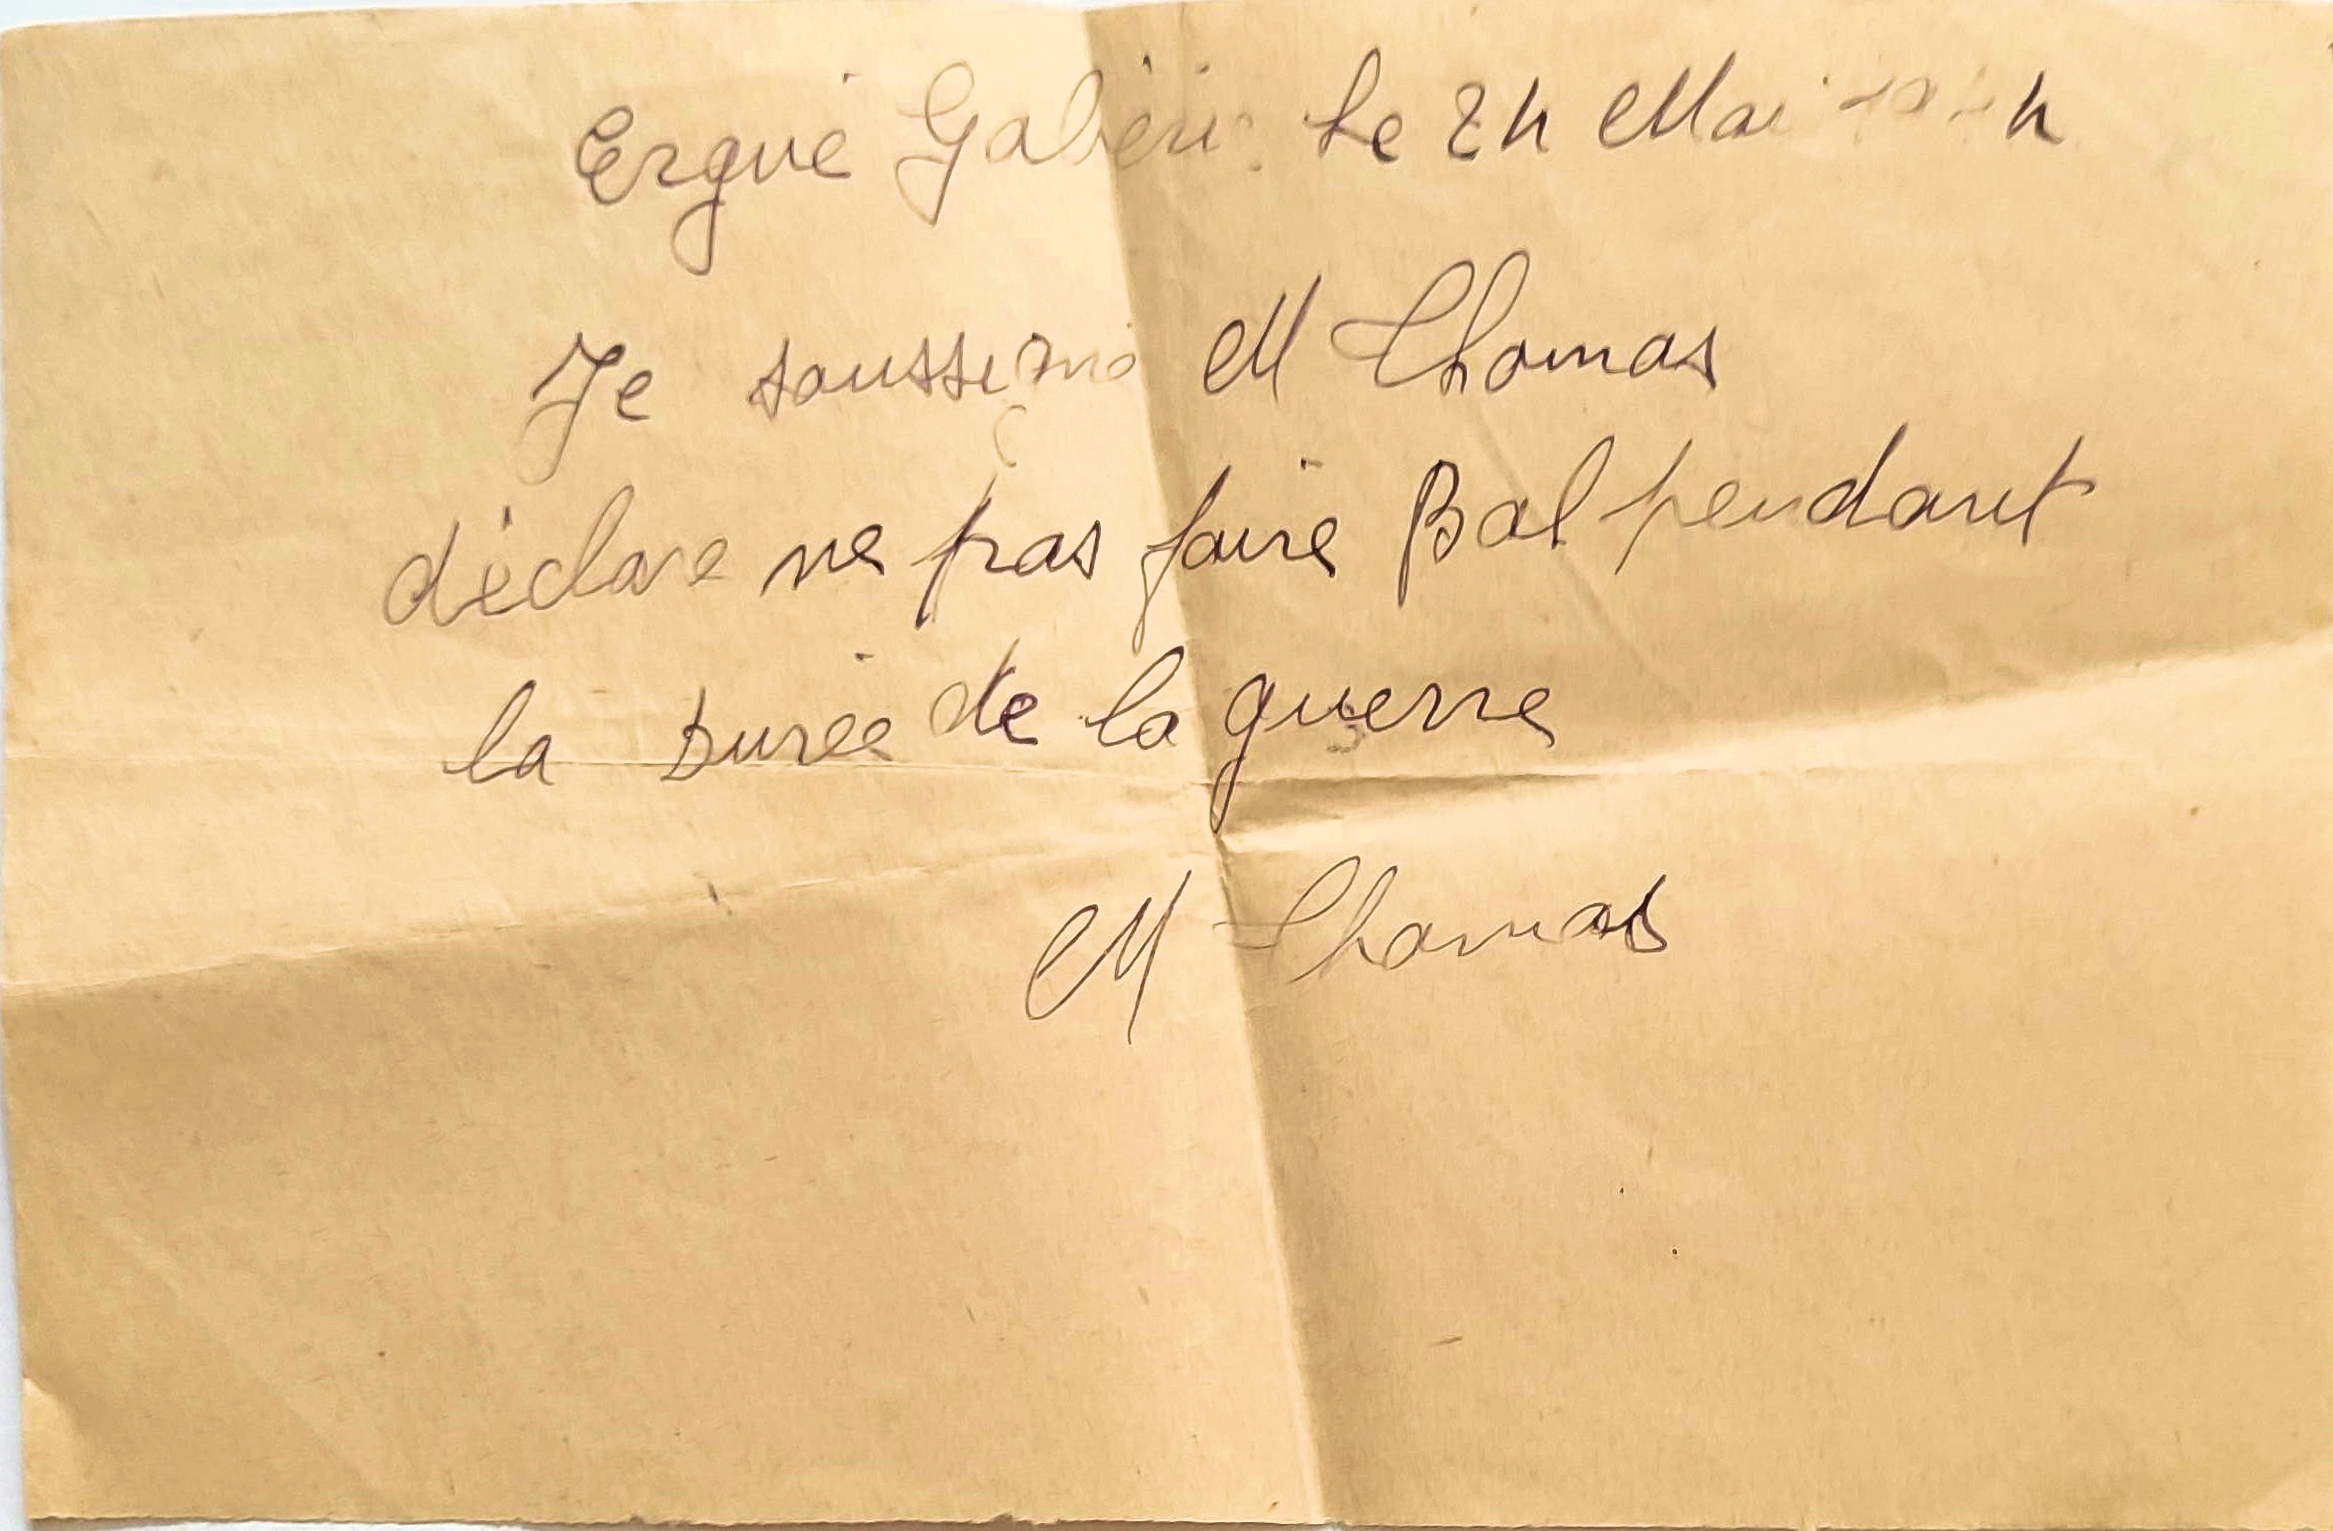 Ergué Gabéric Le 24 Mai
Je soussigné M Thomas
déclare ne pas faire Bal pendant
la Durée de la guerre
M Thomas